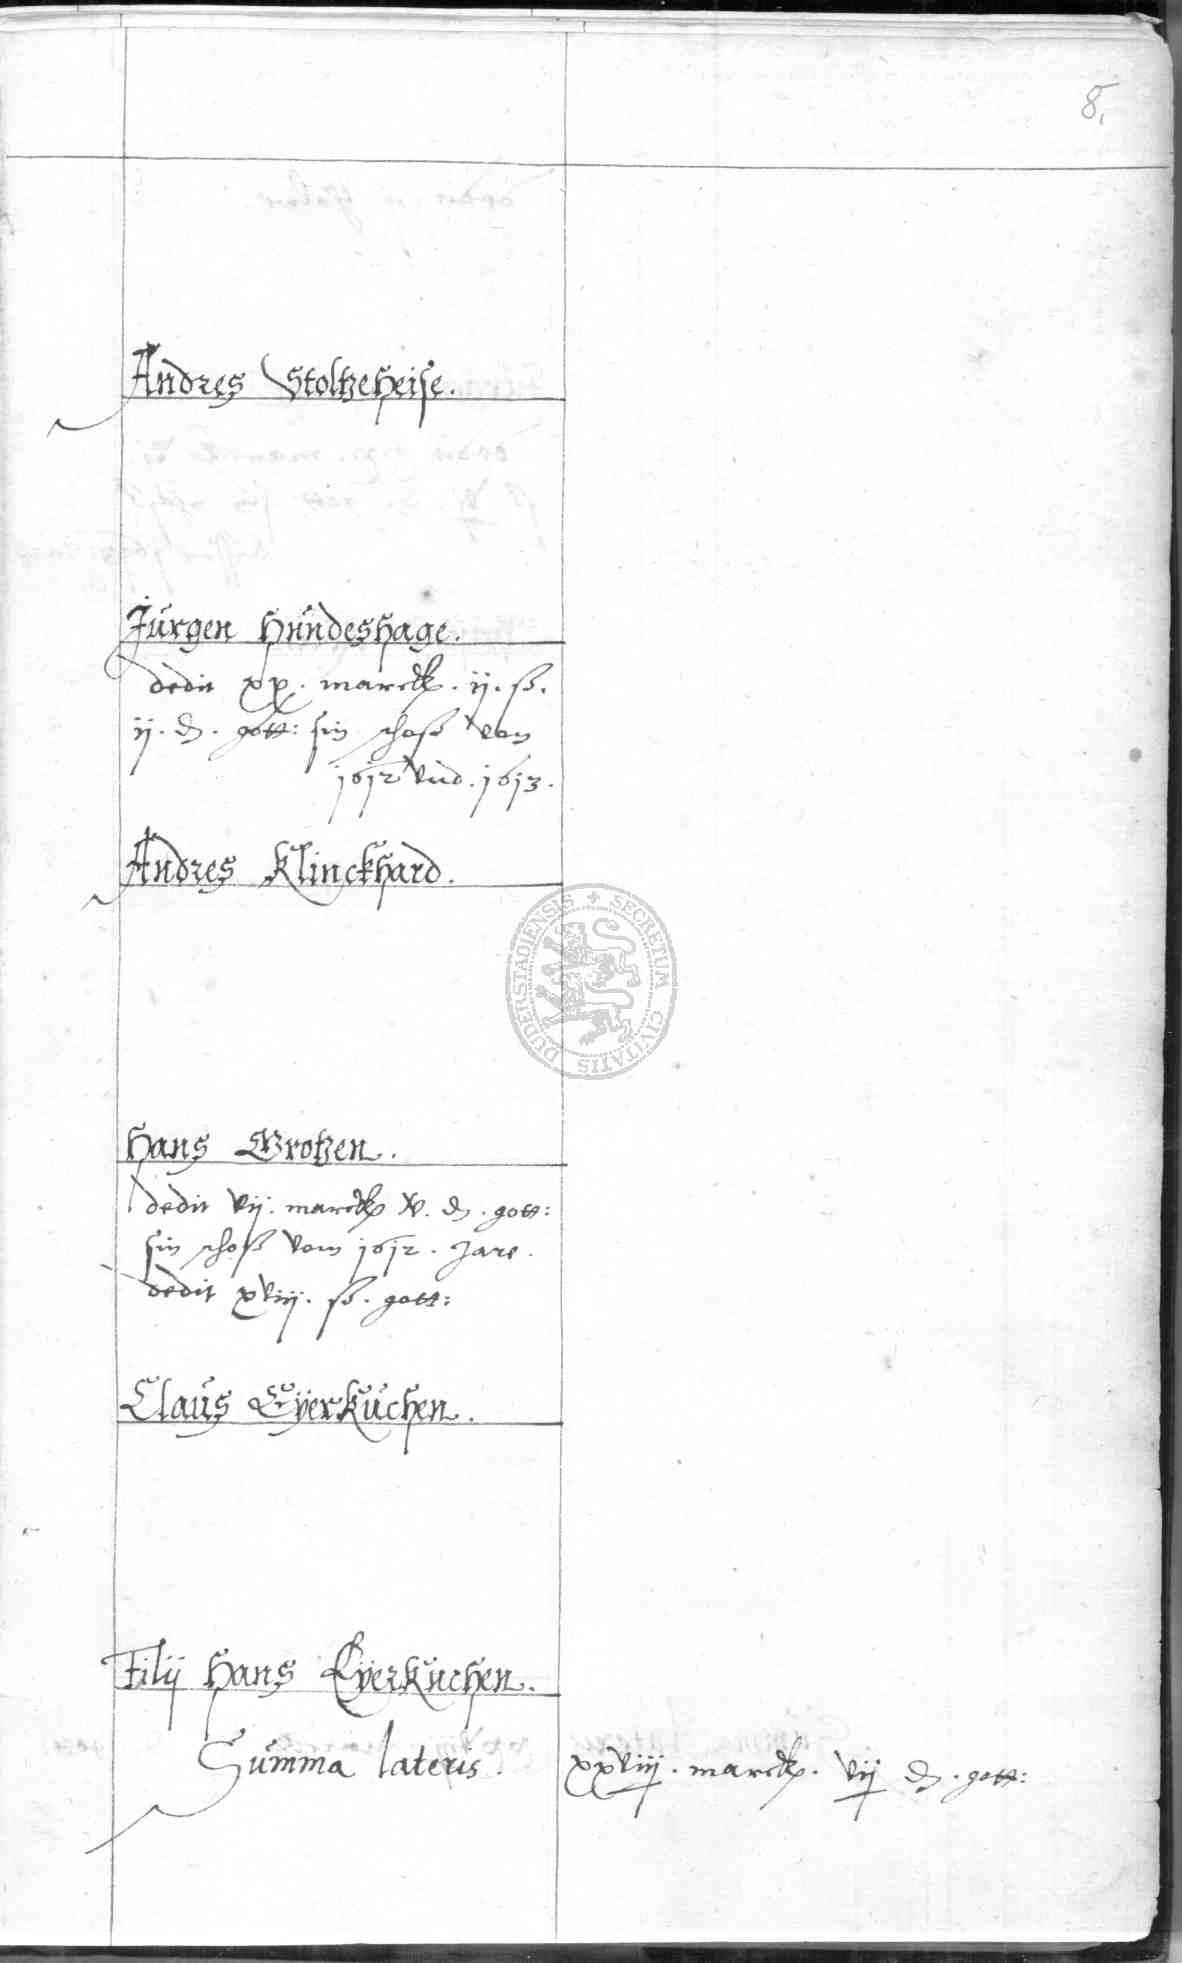 8.
Andres Stoltzeheise.
Jürgen Hundeshage.
dedit xx. marck. ij. ß.
ij. d. gott: sin schoß von
1612 vnd. 1613.
Andres Klinckhard.
SECRETUM CIVITATIS DUDERSTADIENSIS
Hans Grotzen.
dedit vij. marck x. d. gott:
sin schoß vom 1612. Jare.
dedit xviij. ß. gott:
Claus Eyerkuchen.
Filij Hans Eyerkuchen.
Summa lateris. xxviij. marck. vij d. gott: